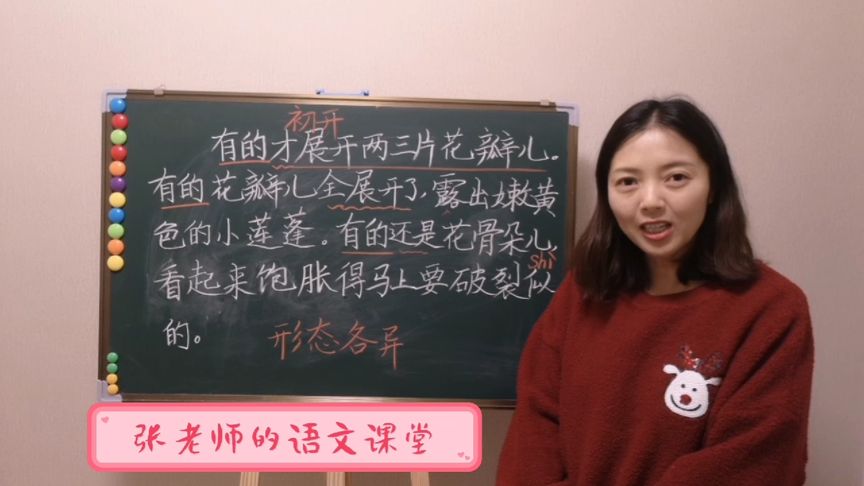 初开
有的才展开两三片花瓣儿。
有的花瓣儿全展开了,露出嫩黄
色的小莲蓬。有的还是花骨朵儿,
shì
看起来饱胀得马上要破裂似
的。
形态各异
张老师的语文课堂